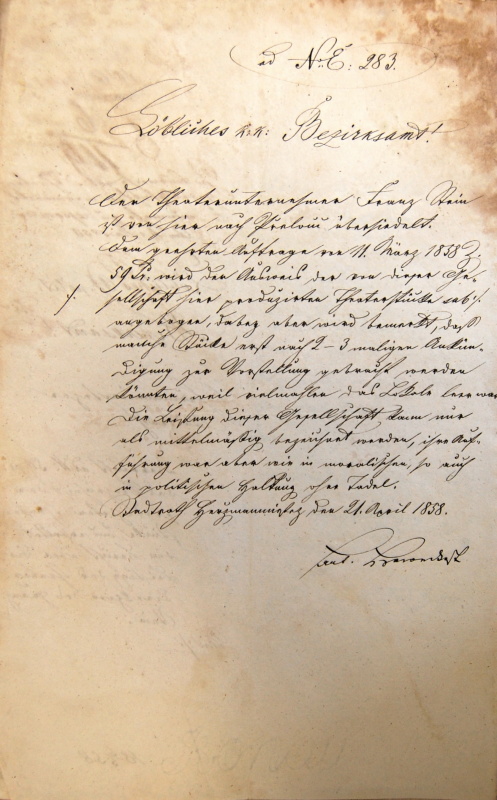 ad No E: 283.
Löbliches k: k: Bezirksamt!
Der Theaterunternehmer Franz Stein
ist von hier nach Přelouč übersiedelt.
Dem geehrten Auftrage vom 11. März 1858 Z.
59 Pr. wird der Ausweis der von dieser Ge-
sellschaft hier produzirten Theaterstücke sub ·/.
angebogen, dabey aber wird bemerkt, daß
manche Stücke erst nach 2-3 maligen Ankün-
digung zur Vorstellung gebracht werden
konnten, weil vielmahlen das Lokale leer war
Die Leistung dieser Gesellschaft kann nur
als mittelmäßig bezeichnet werden, ihre Auf-
führung war aber wie in moralischer, so auch
in politischer Haltung ohne Tadel.
Stadtrath Herzmanmiestez den 21. April 1858.
Ant.